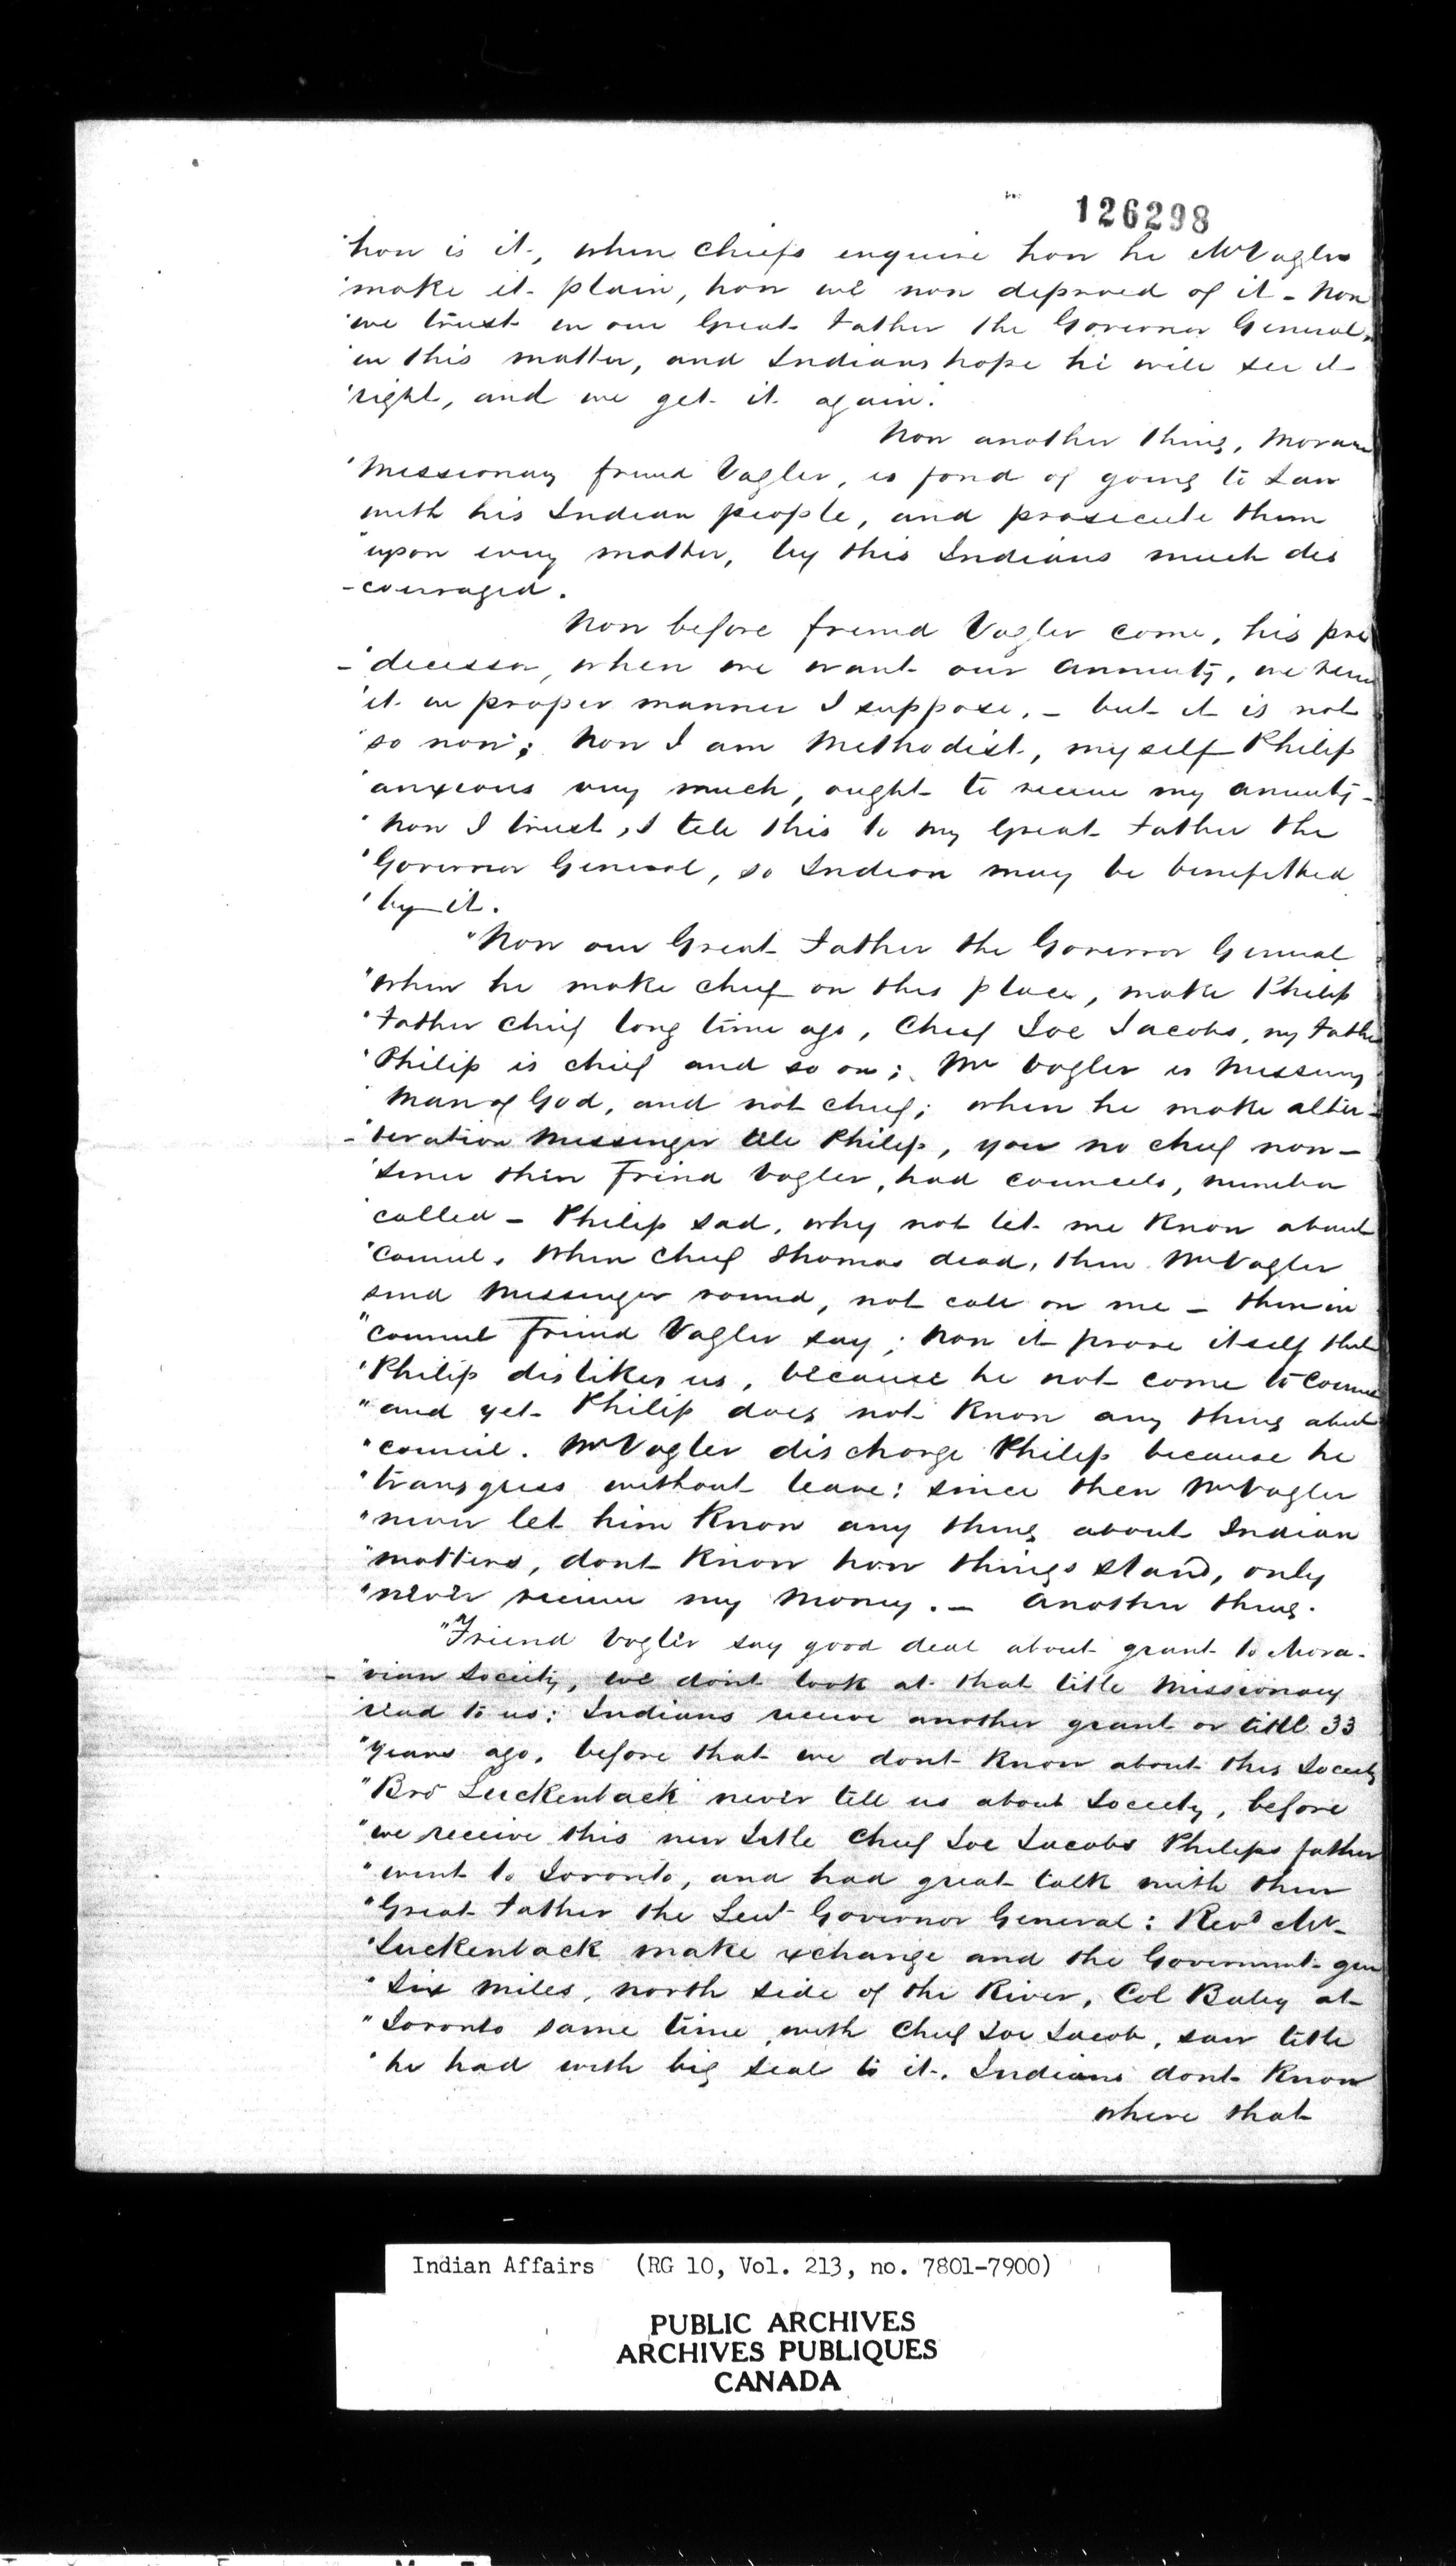 126298
"how is it, when chiefs enquire how he Mr Vogler
"make it plain, how we now deprived of it - Now
"we trust in our Great Father the Governor General,
"in this matter, and Indians hope he will see it
"right, and we get it again."
Now another thing, Morav
"Missionary friend Vogler, is fond of going to Law
with his Indian people, and prosecute them
"upon every matter, by this Indians much dis
-couraged.
Now before friend Vogler come, his pre
-"decessor, when we want our annuity, we
"it in proper manner I suppose, - but it is not
"so now; Now I am Methodist, myself Philip
"anxious very much, ought to receive my annuity -
"Now I trust, I tell this to my Great Father the
"Governor General, so Indian may be benefitted
"by it.
"Now our Great Father the Governor General
"when he make chief on this place, make Philip
"Father chief long time ago, Chief Joe Jacobs, my Father
"Philip is chief and so on; Mr Vogler is
Man of God, and not chief; when he make alter-
-"teration Messenger tell Philip, you no chief now -
"Since then Friend Vogler, had councils, number
"called - Philip sad, why not let me know about
"Council. When Chief Thomas dead, then Mr Vogler
send Messenger round, not call on me - then in
"council Friend Vogler say; Now it prove itself that
"Philip dislikes us, because he not come to Council
"and yet Philip does not know any thing about
"council. Mr Vogler discharge Philip because he
"transgress without leave: since then Mr Vogler
"never let him know any thing about Indian
"matters, dont know how things stand, only
"never receive my money. - Another thing.
"Friend Vogler say good deal about grant to Mora-
-"vian Society, we don't look at that title Missionary
read to us: Indians receive another grant or title 33
"years ago, before that we dont know about this Society
"Bro Luckenback never tell us about Society, before
"we receive this new Title Chief Joe Jacobs Philips father
"went to Toronto, and had great talk with their
"Great Father the Leut Governor General: Revd Mr
"Luckenback make exchange and the Government gave
"Six miles, north side of the River, Col Baby at
"Toronto same time, with Chief Joe Jacob, saw title
"he had with big seal to it. Indians dont know
where that
Indian Affairs (RG 10, Vol. 213, no. 7801-7900)
PUBLIC ARCHIVES
ARCHIVES PUBLIQUES
CANADA